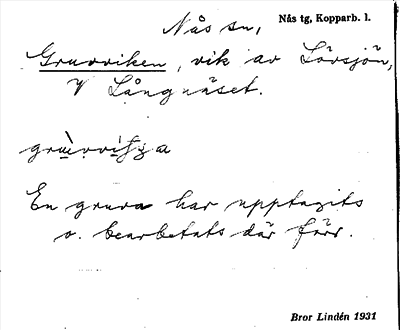 Nås sn,
Nås tg, Kopparb. l.
Gruvviken, vik av Lövsjön,
V Långnäset.
En gruva har upptagits
o. bearbetats där förr.
Bror Lindén 1931